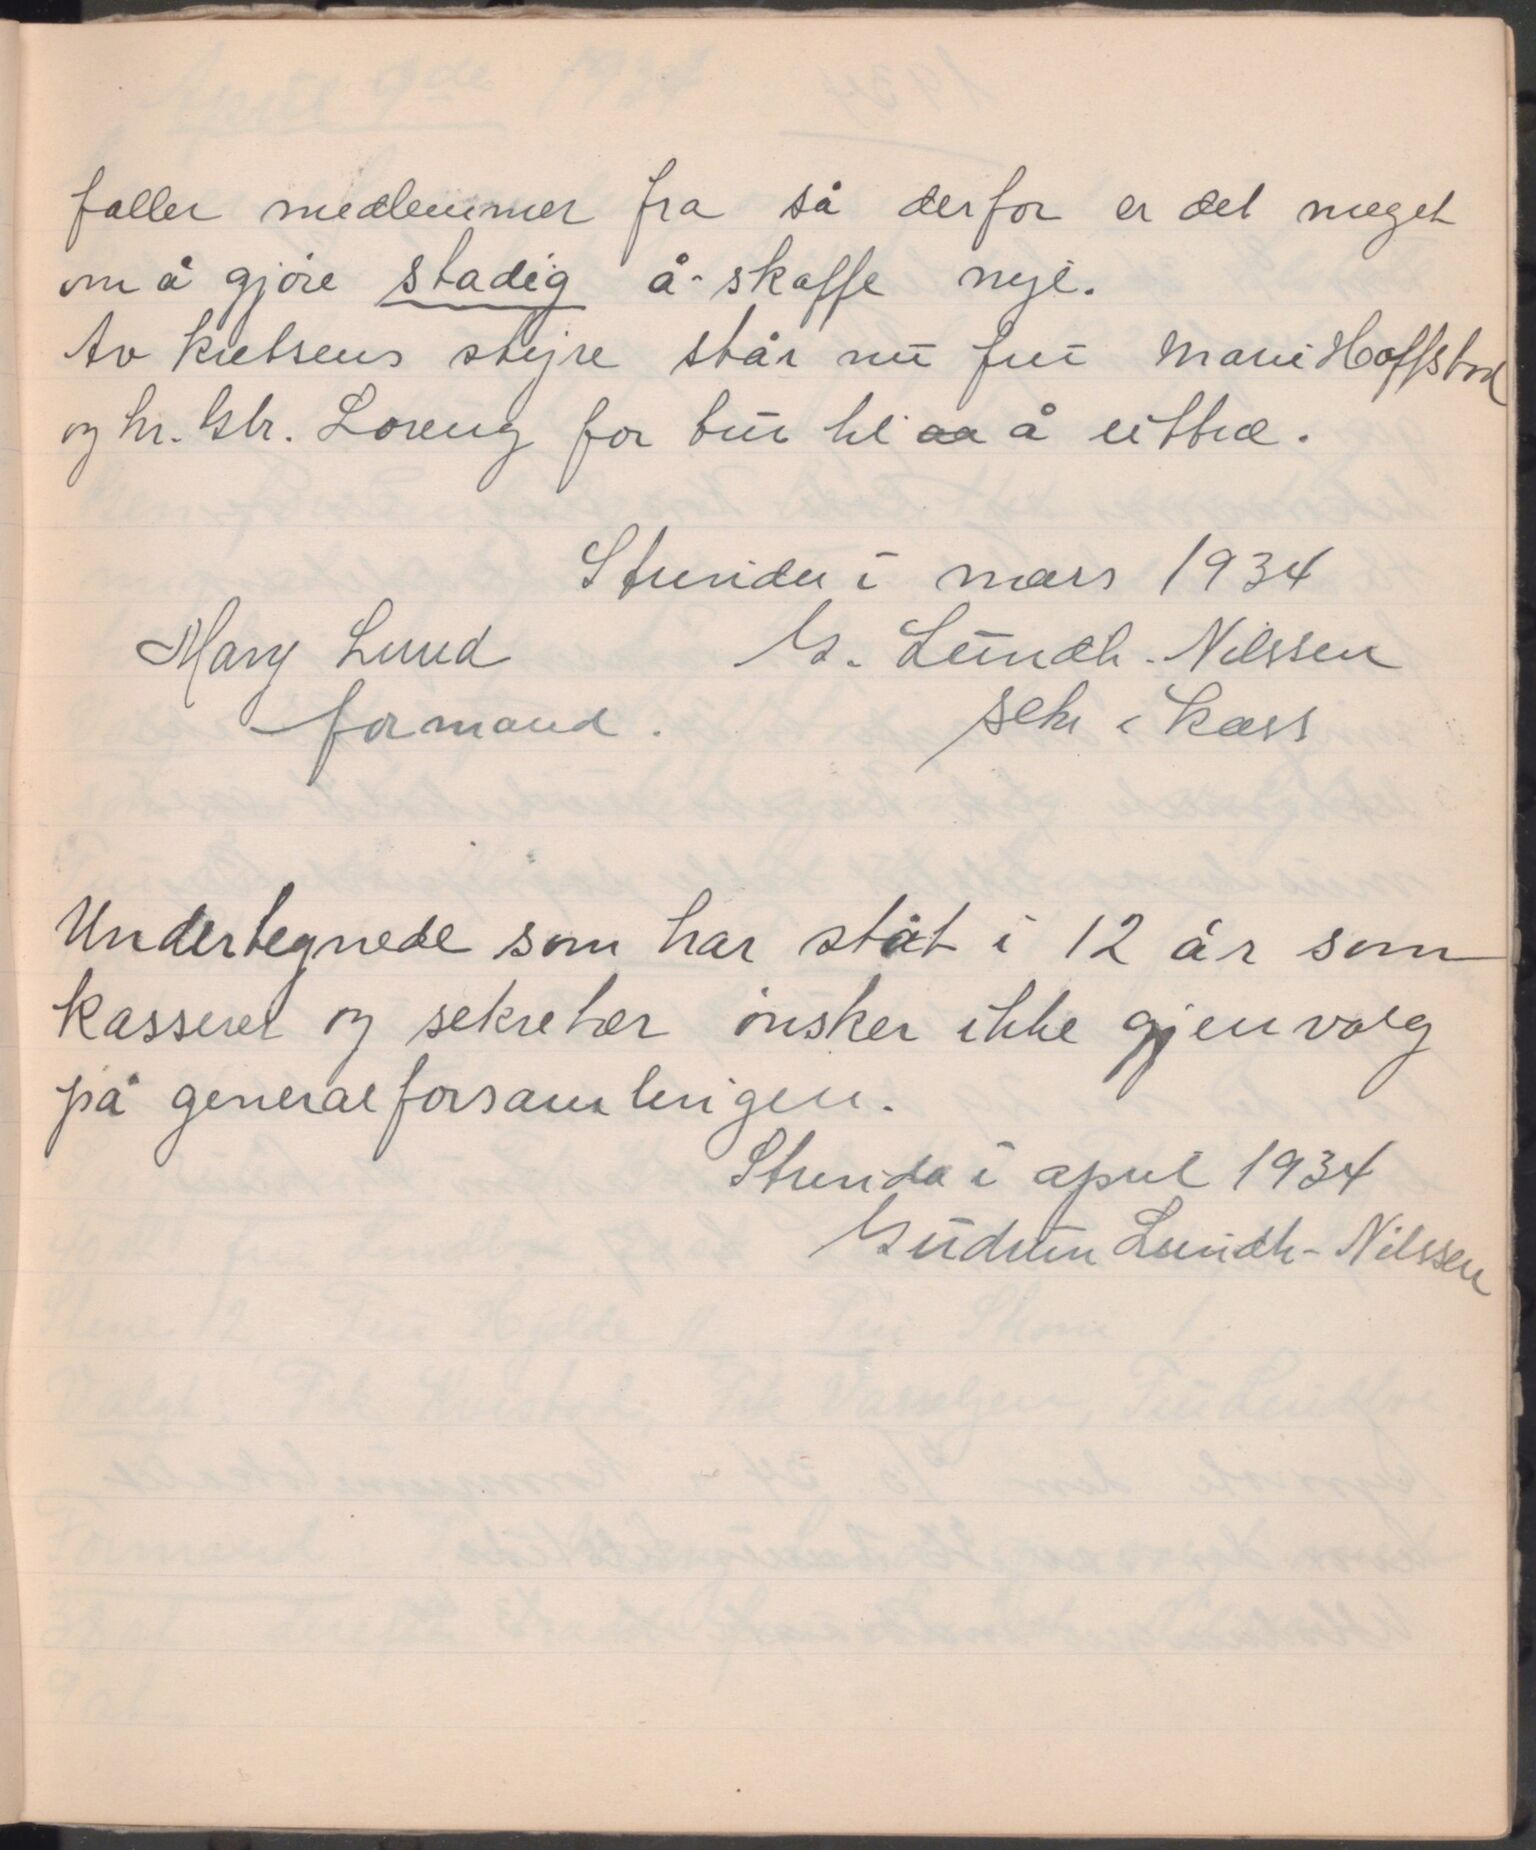 faller medlemmer fra så derfor er det meget
om å gjöre stadig å skaffe nye.
Av kretsens styre står nu fru Marie Hoffstad
og hr. Gbr. Loreng for tur til aa å uttræ.
Strinda i mars 1934
Mary Lund G. Lundh-Nilssen
formand. sekr i kass
Undertegnede som har ståt i 12 år som
kasserer og sekretær önsker ikke gjenvalg
på generalforsamlingen.
Strinda i april 1934
Gudrun Lundh-Nilssen